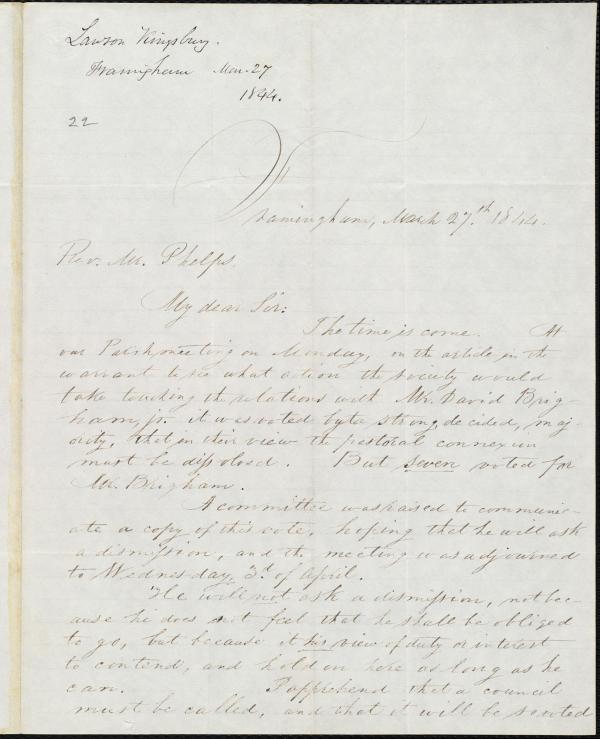 Lawson Kingsbury.
Framingham Mar. 27
1844.
22
Framingham, March 27th. 1844.
Rev. Mr. Phelps.
My dear Sir:
The time is come. At
our Parish meeting on Monday, on the article in the
warrant to see what action the society would
take touching the relations with Mr. David Brig-
ham, jr. it was voted by a strong, decided, maj-
ority, that in their view the pastoral connexion
must be dissolved. But seven voted for
Mr. Brigham.
A committee was raised to communic-
ate a copy of this vote, hoping that he will ask
a dismission, and the meeting was adjourned
to Wednesday, 3d. of April.
He will not ask a dismission, not bec-
ause he does not feel that he shall be obliged
to go, but because it his view of duty or interest
to contend, and hold on here as long as he
can. I apprehend that a council
must be called, and that it will be